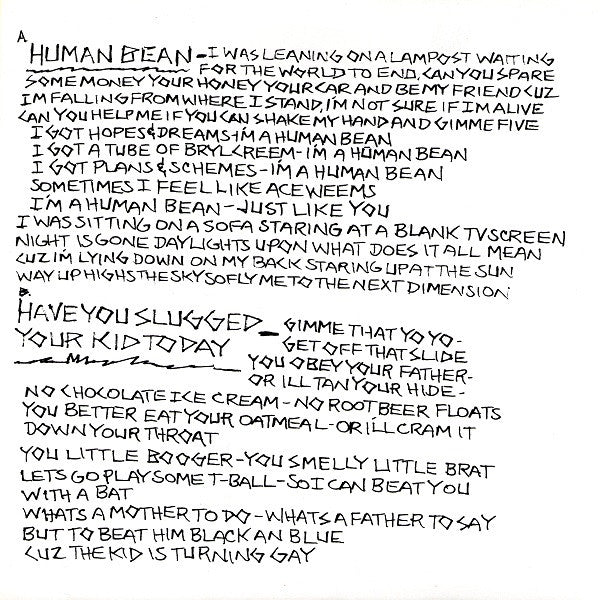 A.
HUMAN BEAN - I WAS LEANING ON A LAMPOST WAITING
FOR THE WORLD TO END, CAN YOU SPARE
SOME MONEY YOUR HONEY YOUR CAR AND BE MY FRIEND CUZ
IM FALLING FROM WHERE I STAND, I'M NOT SURE IF IM ALIVE
CAN YOU HELP ME IF YOU CAN SHAKE MY HAND AND GIMME FIVE
I GOT HOPES & DREAMS-I'M A HUMAN BEAN
I GOT A TUBE OF BRYLCREEM-I'M A HUMAN BEAN
I GOT PLANS & SCHEMES-I'M A HUMAN BEAN
SOMETIMES I FEEL LIKE ACEWEEMS
I'M A HUMAN BEAN-JUST LIKE YOU
I WAS SITTING ON A SOFA STARING AT A BLANK TV SCREEN
NIGHT IS GONE DAYLIGHTS UPON WHAT DOES IT ALL MEAN
CUZ I'M LYING DOWN ON MY BACK STARING UP AT THE SUN
WAY UP HIGHS THE SKY SO FLY ME TO THE NEXT DIMENSION
B.
HAVE YOU SLUGGED - GIMME THAT YO YO-
YOUR KID TODAY GET OFF THAT SLIDE
YOU OBEY YOUR FATHER-
OR ILL TAN YOUR HIDE-
NO CHOCOLATE ICE CREAM-NO ROOT BEER FLOATS
YOU BETTER EAT YOUR OATMEAL-OR I'LL CRAM IT
DOWN YOUR THROAT
YOU LITTLE BOOGER-YOU SMELLY LITTLE BRAT
LETS GO PLAY SOME T-BALL-SO I CAN BEAT YOU
WITH A BAT
WHATS A MOTHER TO DO-WHATS A FATHER TO SAY
BUT TO BEAT HIM BLACK AN BLUE
CUZ THE KID IS TURNING GAY